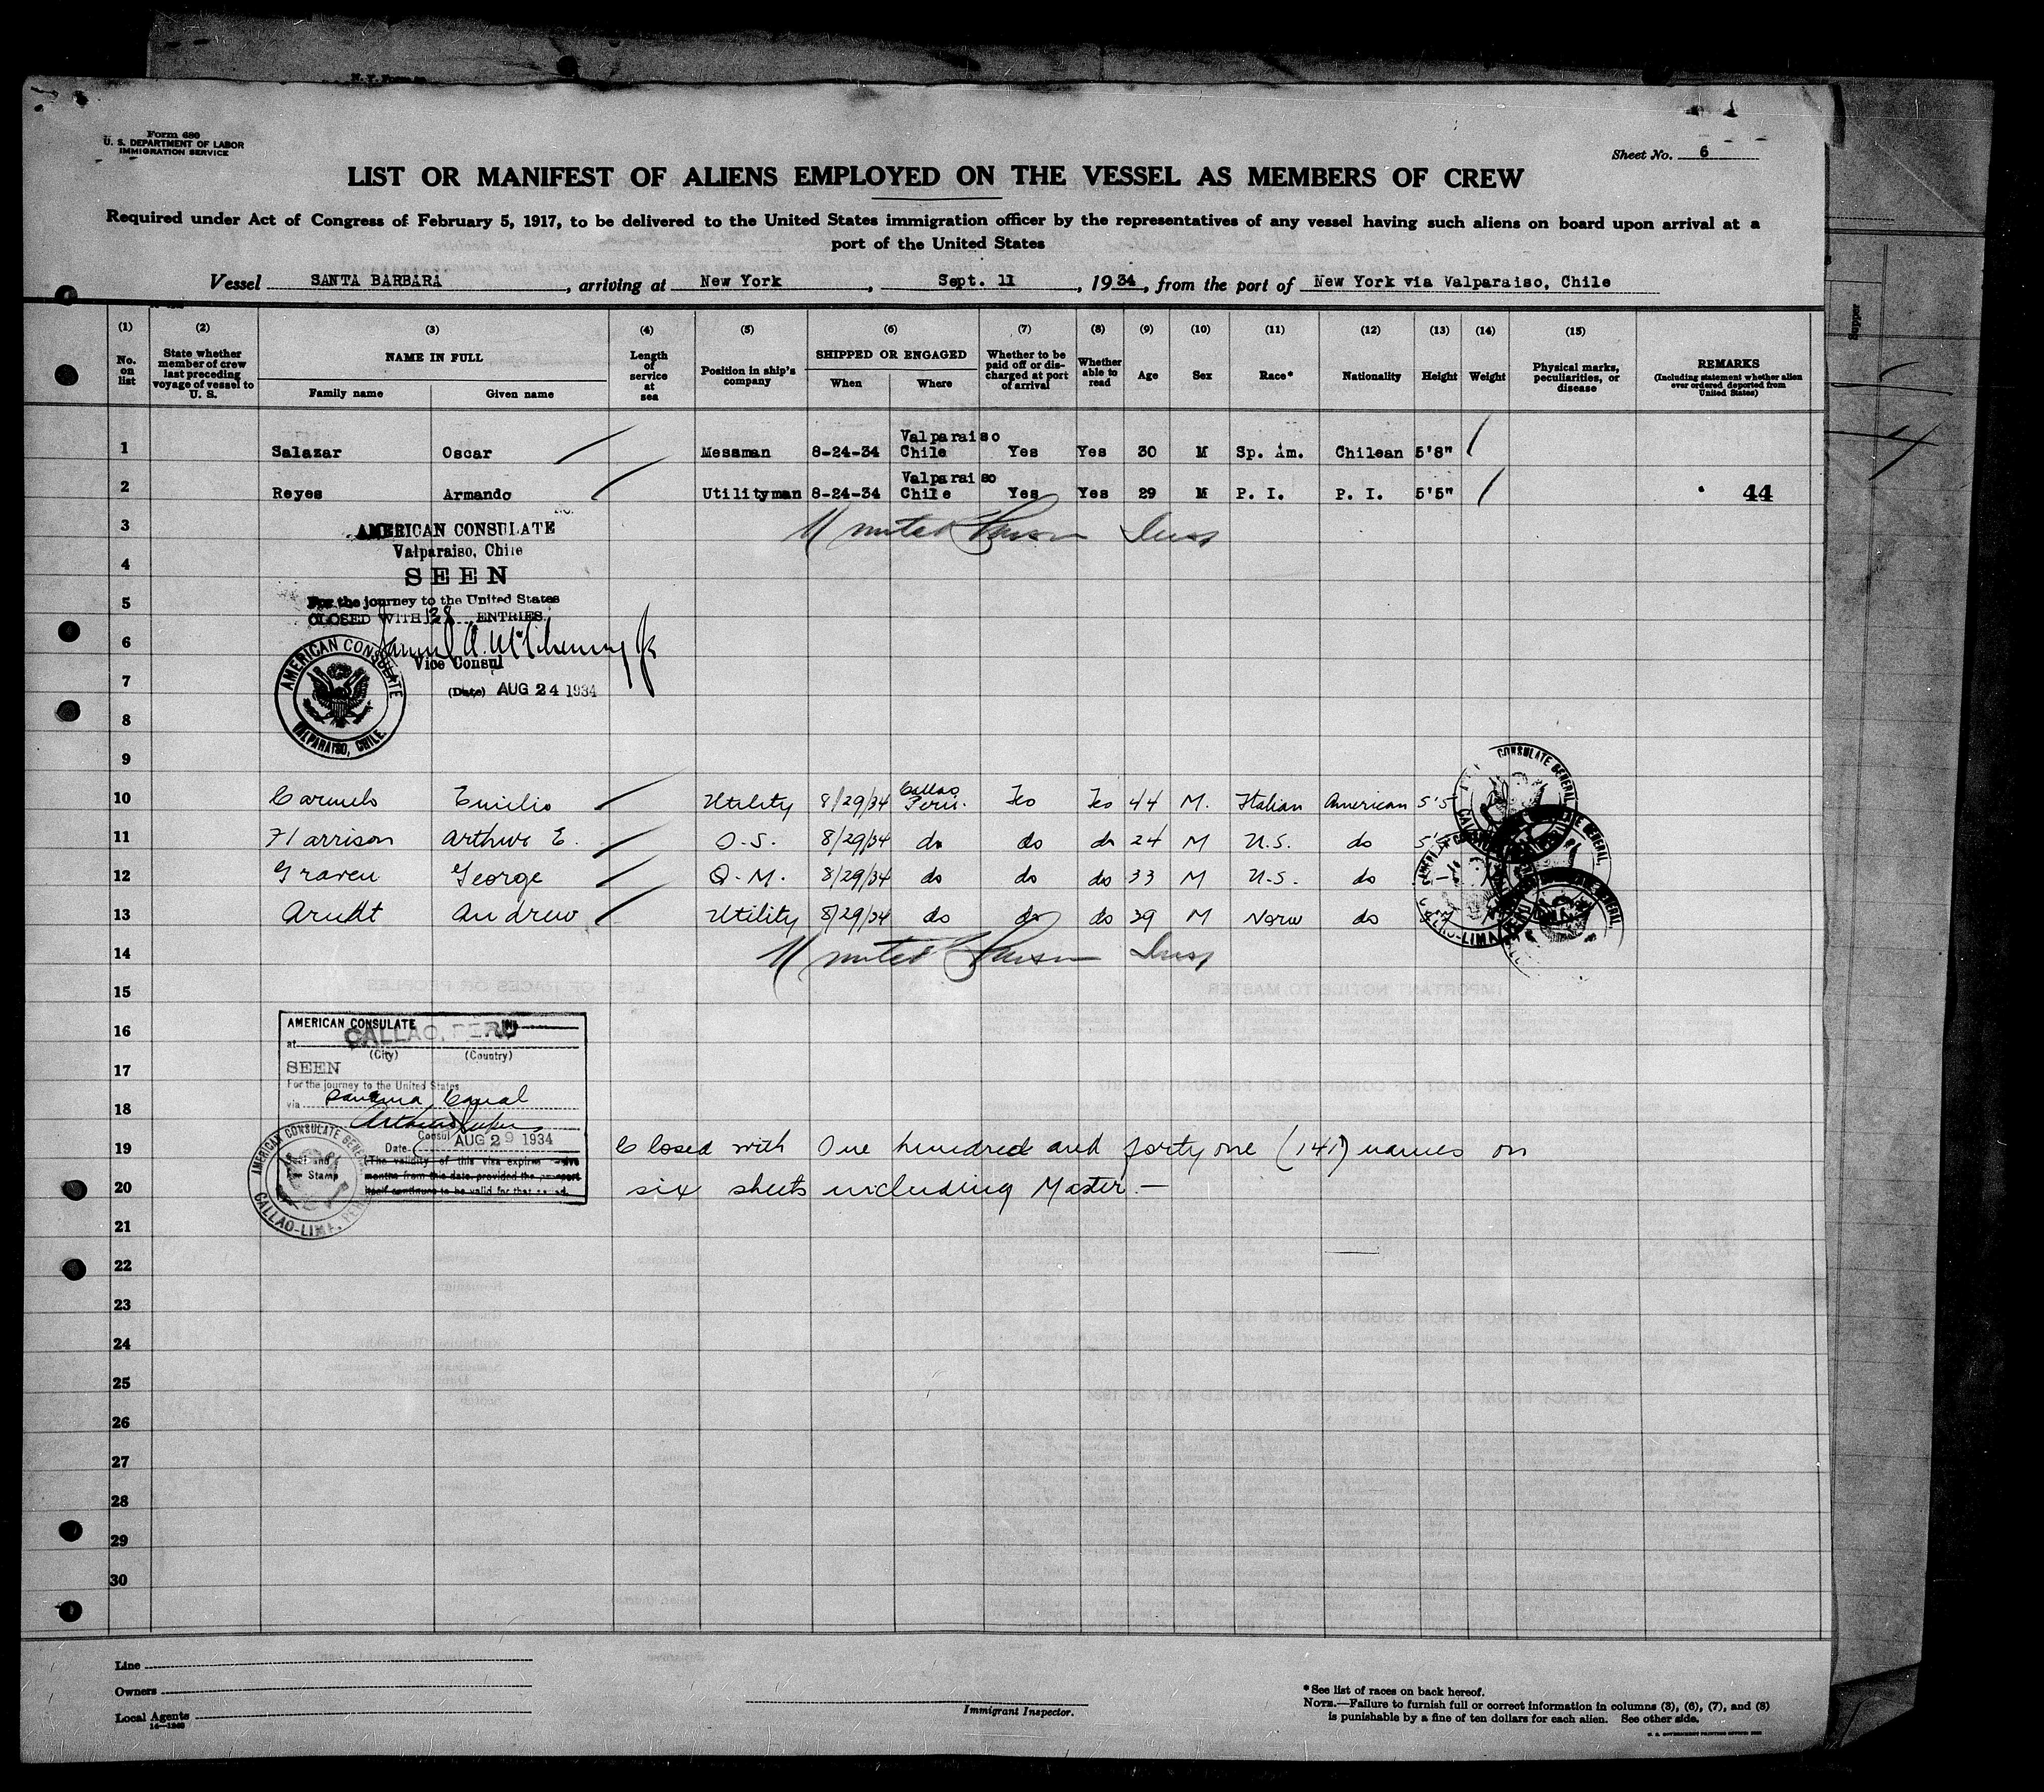 Form 680
U. S. DEPARTMENT OF LABOR
IMMIGRATION SERVICE
Sheet No. 6
LIST OR MANIFEST OF ALIENS EMPLOYED ON THE VESSEL AS MEMBERS OF CREW
Required under Act of Congress of February 5, 1917, to be delivered to the United States immigration officer by the representatives of any vessel having such aliens on board upon arrival at a
port of the United States
Vessel SANTA BARBARA, arriving at New York, Sept. 11, 1934, from the port of New York via Valparaiso, Chile
(1) (2) (3) (4) (5) (6) (7) (8) (9) (10) (11) (12) (13) (14) (15)
No. on list
State whether member of crew last preceding voyage of vessel to U. S.
NAME IN FULL
Family name
Given name
Length of service at sea
Position in ship's company
SHIPPED OR ENGAGED
When
Where
Whether to be paid off or discharged at port of arrival
Whether able to read
Age
Sex
Race*
Nationality
Height
Weight
Physical marks, peculiarities, or disease
REMARKS
(Including statement whether alien ever ordered deported from United States)
Supper
1 Salazar Oscar Messman 8-24-34 Valparaiso Chile Yes Yes 30 M Sp. Am. Chilean 5'8"
2 Reyes Armando Utilityman 8-24-34 Valparaiso Chile Yes Yes 29 M P. I. P. I. 5'5" 44
3
AMERICAN CONSULATE
Valparaiso, Chile
4
SEEN
5
For the journey to the United States
CLOSED WITH 138 ENTRIES.
6
Vice Consul
7
(Date) AUG 24 1934
AMERICAN CONSULATE
VALPARAISO, CHILE.
8
9
10 Carmelo Emilio Utility 8/29/34 Callao Peru. Yes Yes 44 M. Italian American 5'5
11 Harrison Arthur E. O.S. 8/29/34 do do do 24 M U.S. do
12 Graven George Q.M. 8/29/34 do do do 33 M U.S. do
13 Arndt Andrew Utility 8/29/34 do do do 39 M Norw do
CONSULATE GENERAL
14
15
16
AMERICAN CONSULATE
at CALLAO, PERU
(City) (Country)
17
SEEN
For the journey to the United States
18
via Panama Canal
Consul
Date AUG 29 1934
19 Closed with One hundred and forty one (141) names on
(The validity of this visa expires twelve
months from this date provided the passport
itself continues to be valid for that period.
Stamp
20 six sheets including Master.—
AMERICAN CONSULATE GENERAL
CALLAO-LIMA, PERU
21
22
23
24
25
26
27
28
29
30
Line
Owners
Local Agents
14—1240
Immigrant Inspector.
*See list of races on back hereof.
NOTE.—Failure to furnish full or correct information in columns (3), (6), (7), and (8)
is punishable by a fine of ten dollars for each alien. See other side.